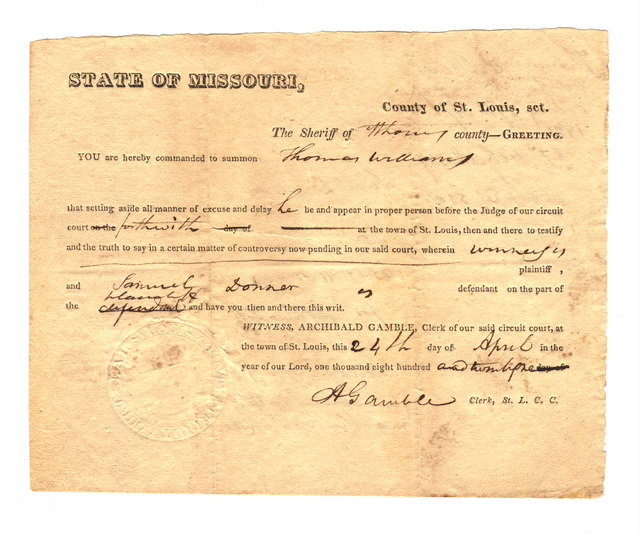 STATE OF MISSOURI,
County of St. Louis, sct.
The Sheriff of county—GREETING.
YOU are hereby commanded to summon Thomas Williams
that setting aside all manner of excuse and delay he be and appear in proper person before the Judge of our circuit
court on the forthwith day of at the town of St. Louis, then and there to testify
and the truth to say in a certain matter of controversy now pending in our said court, wherein
plaintiff,
and Samuel Donner is defendant on the part of
the defendant and have you then and there this writ.
WITNESS, ARCHIBALD GAMBLE, Clerk of our said circuit court, at
the town of St. Louis, this 24th day of April in the
year of our Lord, one thousand eight hundred and day of
A Gamble Clerk, St. L. C. C.